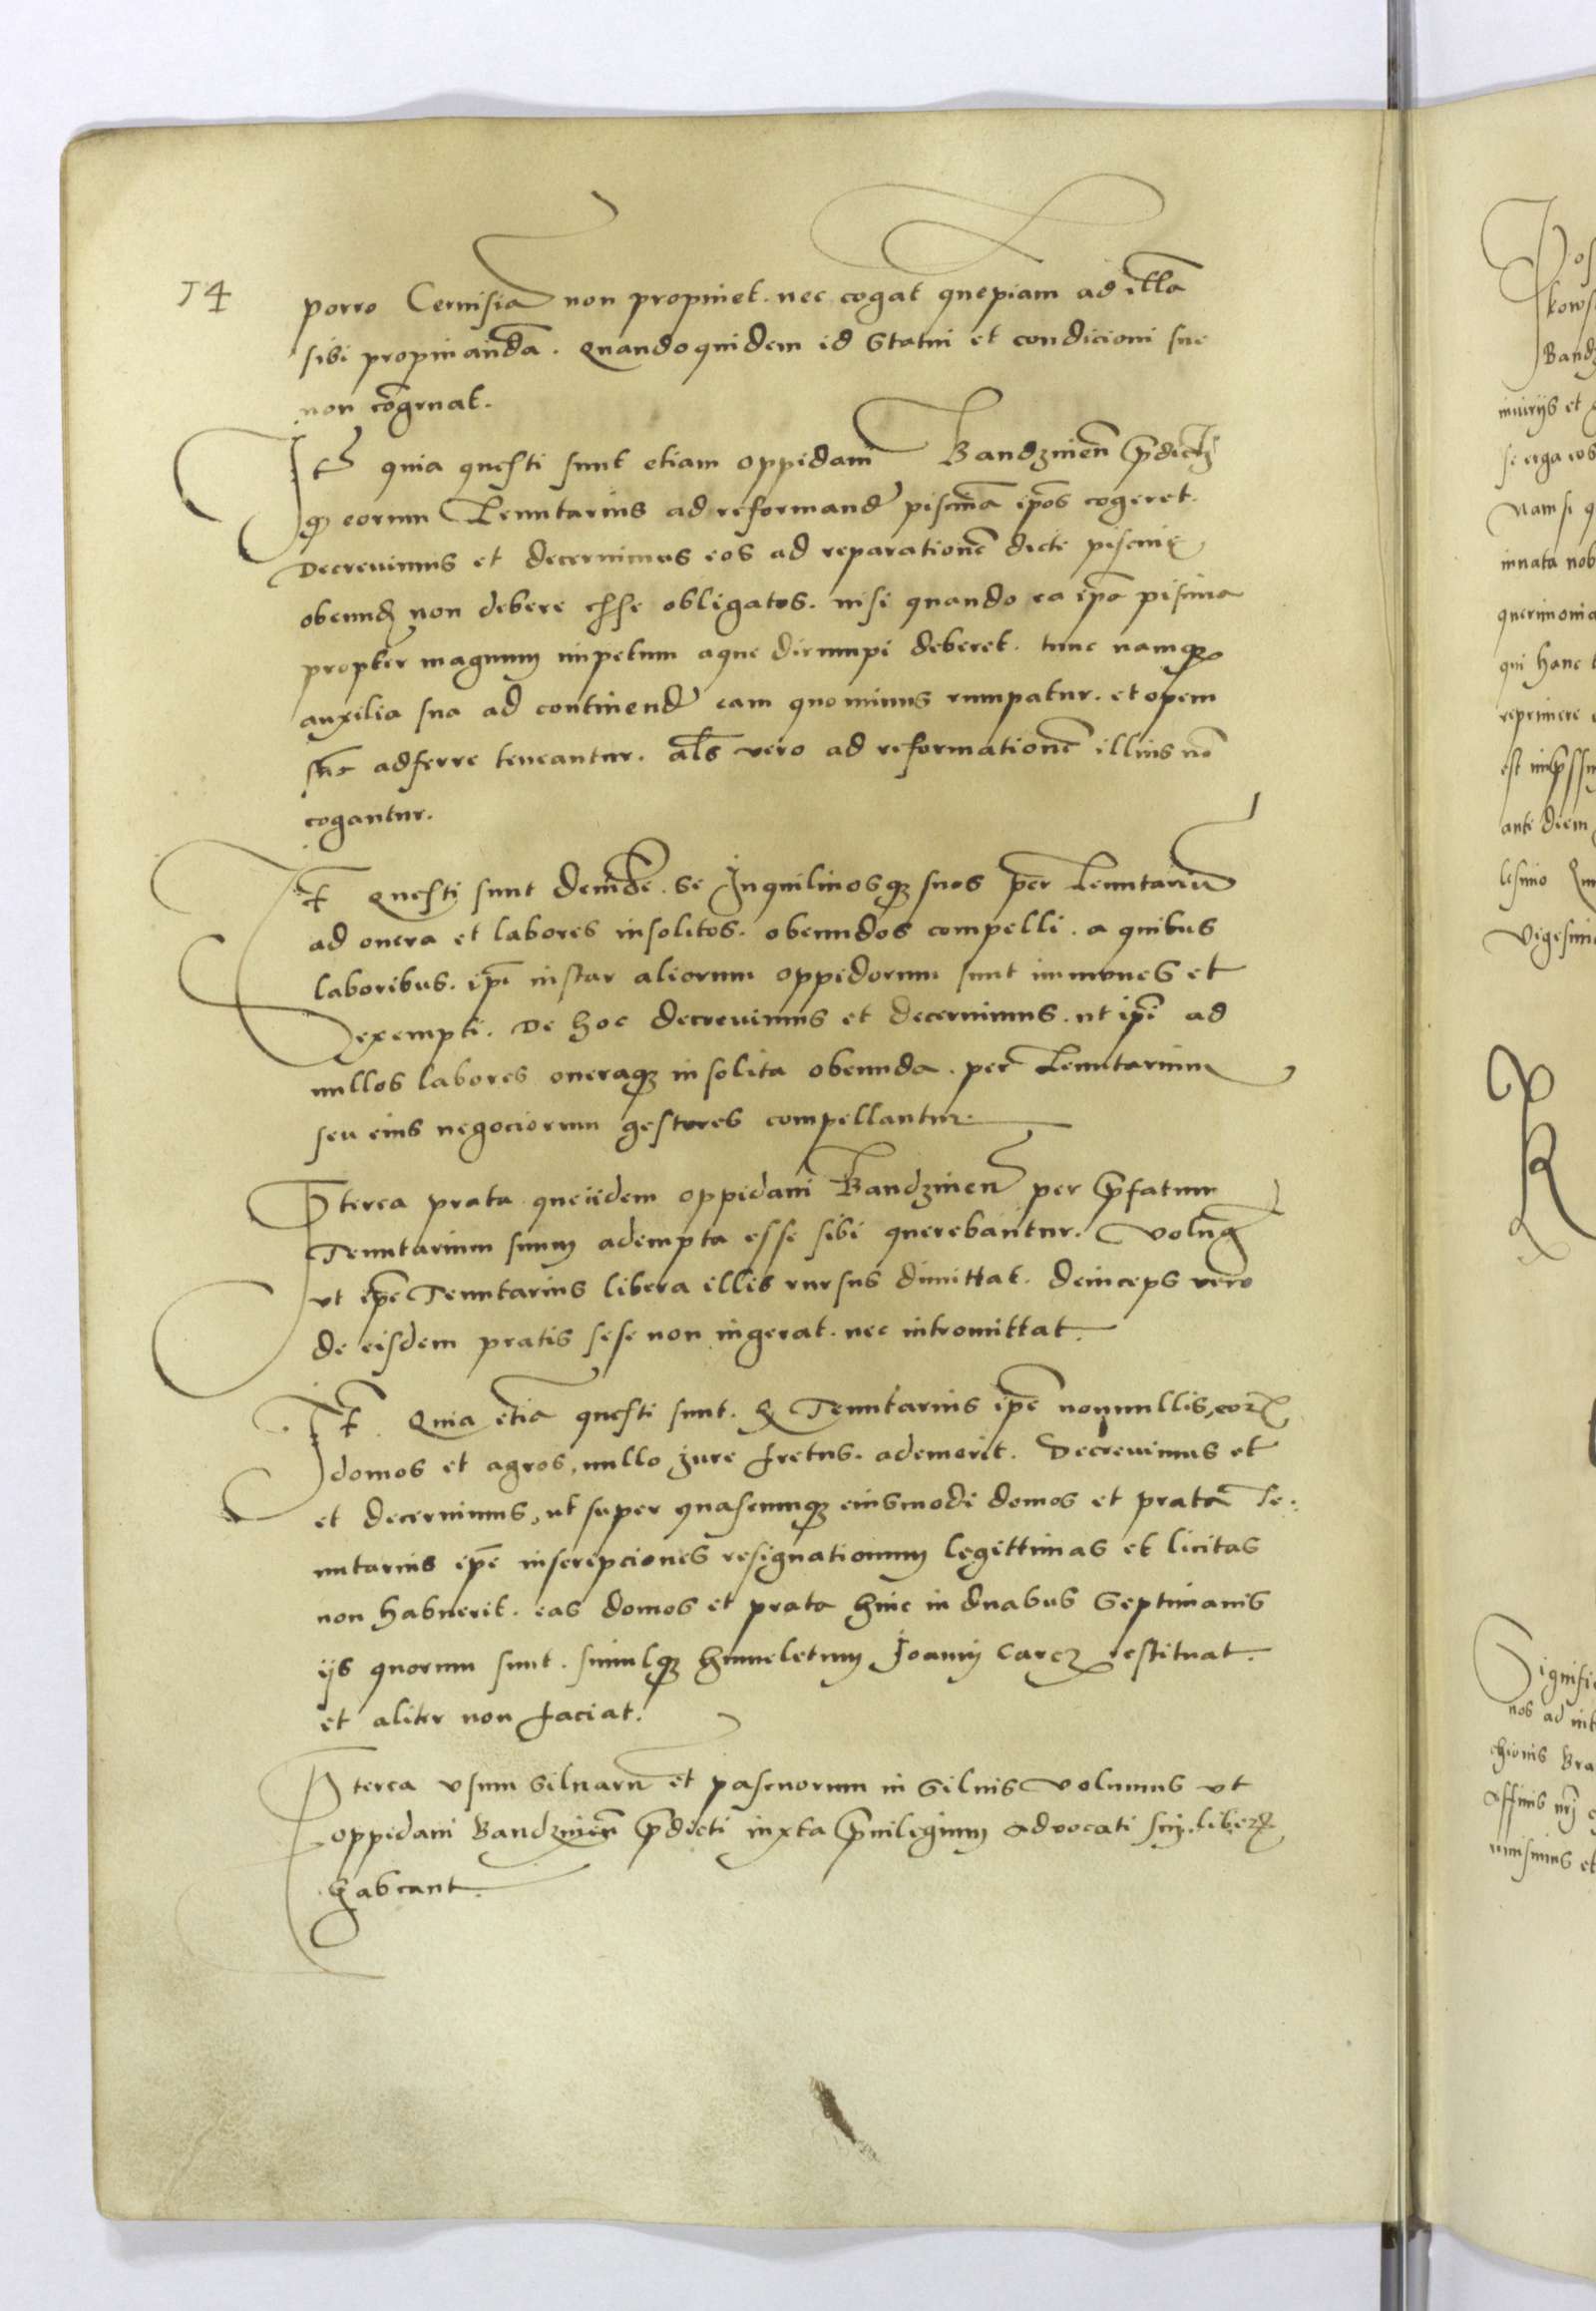 14
porro Cervisiā non propinet. nec cogat quepiam ad illā
sibi propinandā. quandoquidem id Statui et condicioni sue
non cōgruat.
It̄ quia questi sunt etiam oppidani Bandzinen̄ p̄dicti
q eorum Tenutarius ad reformand piscinā ip̄os cogeret.
Decrevimus et decernimus eos ad reparationē dicte piscine
obeund non debere esse obligatos. nisi quando ea ip̄a piscina
propter magnum impetum aque dirrumpi deberet. tunc namq
auxilia sua ad continend eam quominus rumpatur. et opem
adferre teneantur. al̄s vero ad reformationē illius nō
cogantur.
It̄ Questi sunt deinde. se Inquilinosq suos per Tenutariū
ad onera et labores insolitos. obeundos compelli. a quibus
laboribus. ip̄i instar aliorum oppidorum sunt immunes et
exempti. De hoc decrevimus et decernimus. ut ip̄i ad
nullos labores oneraq insolita obeunda. per Tenutarium
seu eius negociorum gestores compellantur.
P̄terea prata que iidem oppidani Bandzinen̄ per p̄fatum
Tenutarium suum adempta esse sibi querebantur. Volum9
ut ip̄e Tenutarius libera illis rursus dimittat. deinceps vero
de eisdem pratis sese non ingerat. nec intromittat.
It̄ Quia etiā questi sunt. q Tenutarius ip̄e nonnullis, eorꝫ
domos et agros, nullo jure fretus. ademerit. Decrevimus et
et decernimus, ut super quascumq eiusmodi domos et prata Te:
nutarius ip̄e inscripciones resignationum legittimas et licitas
non habuerit. eas domos et prata hinc in duabus Septimanis
ijs quorum sunt. simulq humeletum Joanni Carcz restituat.
et aliter non faciat.
P̄terea usum silvarū et pascuorum in silvis volumus ut
oppidani Bandzinen̄ p̄dicti iuxta p̄vilegium advocati sui. liberꝫ
habeant.